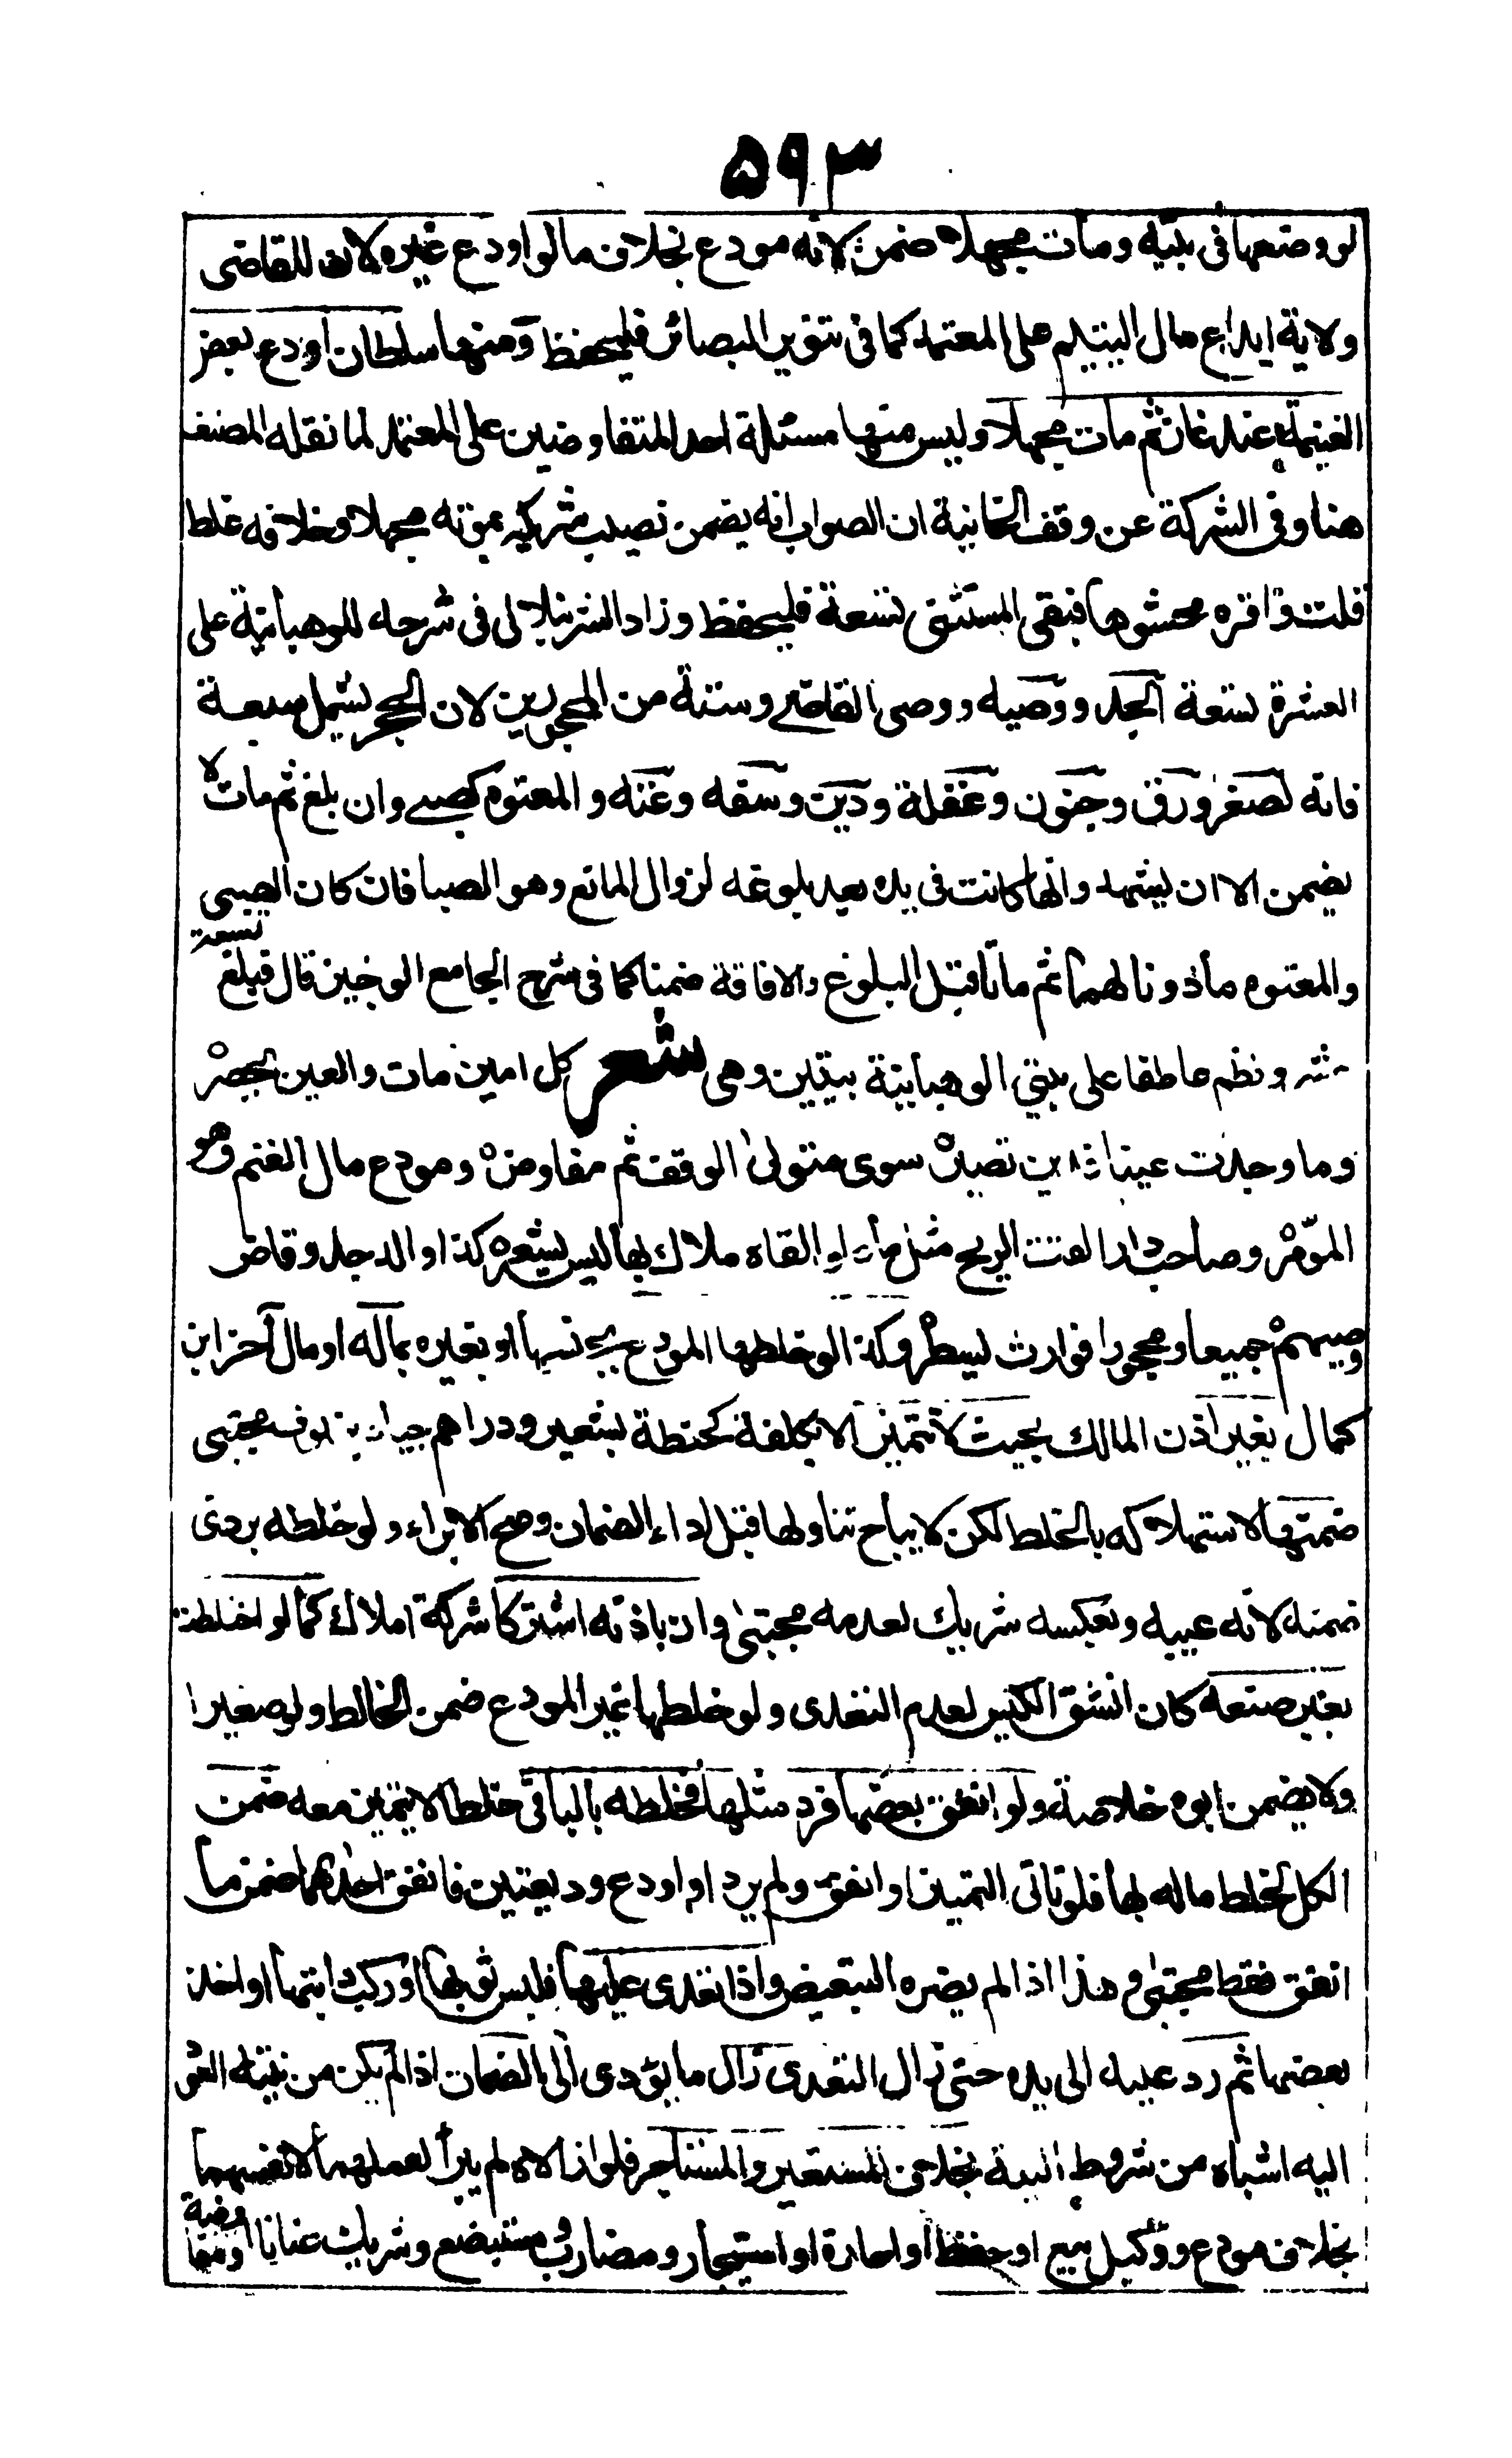 ٥٩٣
لو وضعها فى بيته ومات مجهلا ضمن لانه مودع بخلاف ما لو اودع غيره لان للقاضى
ولاية ايداع مال اليتيم على المعتمد كما فى تنوير البصائر فليحفظ ومنها سلطان اودع بعض
الغنيمة عند غاز ثم مات مجهلا وليس منها مسئلة احد المتفاوضين على المعتمد لما نقله المصنف
هنا وفى الشركة عن وقف الخانية ان الصواب انه يضمن نصيب شريكه بموته مجهلا وخلافه غلط
قلت واقره محشوها فبقى المستثنى تسعة فليحفظ وزاد الشرنبلالى فى شرحه للوهبانية على
العشرة تسعة الجد ووصيه ووصى القاضے وستة من المحجورين لان الحجر يشمل سبعة
فانه لصغر ورق وجنون وغفلة ودين وسفه وعته والمعتوه كصبے وان بلغ ثم مات لا
يضمن الا ان يشهد وانها كانت فى يده بعد بلوغه لزوال المانع وهو الصبا فان كان الصبى
والمعتوه مأذونا لهما ثم ماتا قبل البلوغ والافاقة ضمنا كما فى شرح الجامع الوجيز قال فبلغ تسعة
عشر ونظم عاطفا على بيتي الوهبانية بيتين وهى شعر كل امين مات والعين تحصر
وما وجدت عينا فدين تصير سوى متولى الوقف ثم مفاوض ومودع مال الغنم وهو
المؤمر وصاحب دار القت الريح مثل ما لو القاه ملاك بها ليس يشعر كذا والد جد وقاض
وصيهم جميعا ومحجور فوارث يسطر وكذا لو خلطها المودع بجنسها او بغيره بماله او مال آخر ابن
كمال بغير اذن المالك بحيث لا تتميز الا بكلفة كحنطة بشعير ودراهم جياد بزيوف مجتبى
ضمنها لاستهلاكه بالخلط لكن لا يباح تناولها قبل اداء الضمان وصح الابراء ولو خلطه بردى
ضمنه لانه عيبه وبعكسه شريك لعدمه مجتبى وان باذنه اشتركا شركة املاك كما لو اختلطت
بغير صنعه كان انشق الكيس لعدم التعدى ولو خلطها غير المودع ضمن الخالط ولو صغيرا
ولا يضمن ابوه خلاصة ولو انفق بعضها فرد مثلها فخلطه بالباقى خلطا لا يتميز معه ضمن
الكل لخلط ماله بها فلو تأتى التمييز او انفق ولم يرد او اودع وديعتين فانفق احدهما ضمن ما
انفق فقط مجتبى وهذا اذا لم يضره التبعيض واذا تعدى عليها فلبس ثوبها او ركب دابتها او اخذ
بعضها ثم رد عينه الى يده حتى زال التعدى زال ما يؤدى الى الضمان اذا لم يكن من نيته العود
اليه اشباه من شروط النية بخلاف المستعير والمستاجر فلو ازالاه لم يبرأ لعملهما لانفسهما
بخلاف مودع ووكيل بيع او حفظ او اجارة او استيجار ومضارب ومستبضع وشريك عنانا او مفاوضة